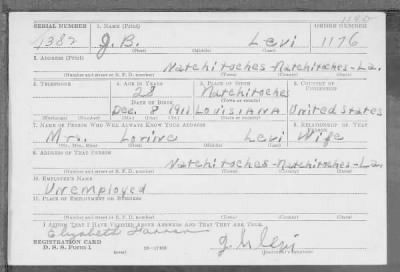 SERIAL NUMBER 1. NAME (Print) ORDER NUMBER
1382 J.B. Levi 1176
(First) (Middle) (Last)
2. ADDRESS (Print)
Natchitoches-Natchitoches-La.
(Number and street or R. F. D. number) (Town) (County) (State)
3. TELEPHONE 4. AGE IN YEARS 5. PLACE OF BIRTH 6. COUNTRY OF CITIZENSHIP
28 Natchitoches
DATE OF BIRTH (Town or county)
Dec. 8 1911 Louisiana United States
(Exchange) (Number) (Mo.) (Day) (Yr.) (State or country)
7. NAME OF PERSON WHO WILL ALWAYS KNOW YOUR ADDRESS 8. RELATIONSHIP OF THAT PERSON
Mrs. Levi Wife
(Mr., Mrs., Miss) (First) (Middle) (Last)
9. ADDRESS OF THAT PERSON
Natchitoches-Natchitoches-La.
(Number and street or R. F. D. number) (Town) (County) (State)
10. EMPLOYER'S NAME
Unemployed
11. PLACE OF EMPLOYMENT OR BUSINESS
(Number and street or R. F. D. number) (Town) (County) (State)
I AFFIRM THAT I HAVE VERIFIED ABOVE ANSWERS AND THAT THEY ARE TRUE.
Elizabeth
REGISTRATION CARD
D. S. S. FORM 1 (over) (Registrant's signature)